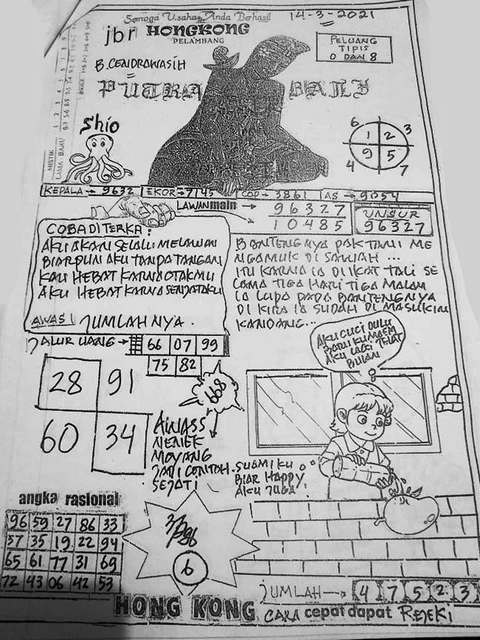 Semoga Usaha Anda Berhasil
14-3-2021
jbr HONGKONG
PELAMBANG
B. CENDRAWASIH
PELUANG
TIPIS
0 DAN 8
PUTRA BALI
Shio
MISTIK
6 2 3
1 2
9 5
4 7
KEPALA → 9632 EKOR → 7145 COP → 3861 AS → 9054
LAWAN main → 9 6 3 2 7
1 0 4 8 5
UNSUR
96327
COBA DITERKA:
AKU AKAN SELALU MELAWAN
BIARPUN AKU TANPA TANGAN
KAU HEBAT KARNA OTAKMU
AKU HEBAT KARNA SENJATAKU
AWAS! JUMLAHNYA.
BANTENGNYA PAK TANI ME
NGAMUK DI SAWAH...
ITU KARNA IA DI IKAT TALI SE
LAMA TIGA HARI TIGA MALAM
IA LUPA PADA BANTENGNYA
DI KIRA IA SUDAH DI MASUKIN
KANDANG...
JALUR UANG → 66 07 99
75 82
668
28 91
60 34
AKU CUCI DULU
AKU LAGI LIHAT
BULAN
AWASS
NENEK
MOYANG
JADI CONTOH
SEJATI
SUAMIKU
BIAR HAPPY,
AKU JUGA!
angka rasional
96 59 27 86 33
57 35 19 22 94
65 61 77 31 69
72 43 06 42 53
6
JUMLAH → 4 7 5 2 3
HONG KONG CARA cepat dapat REJEKI